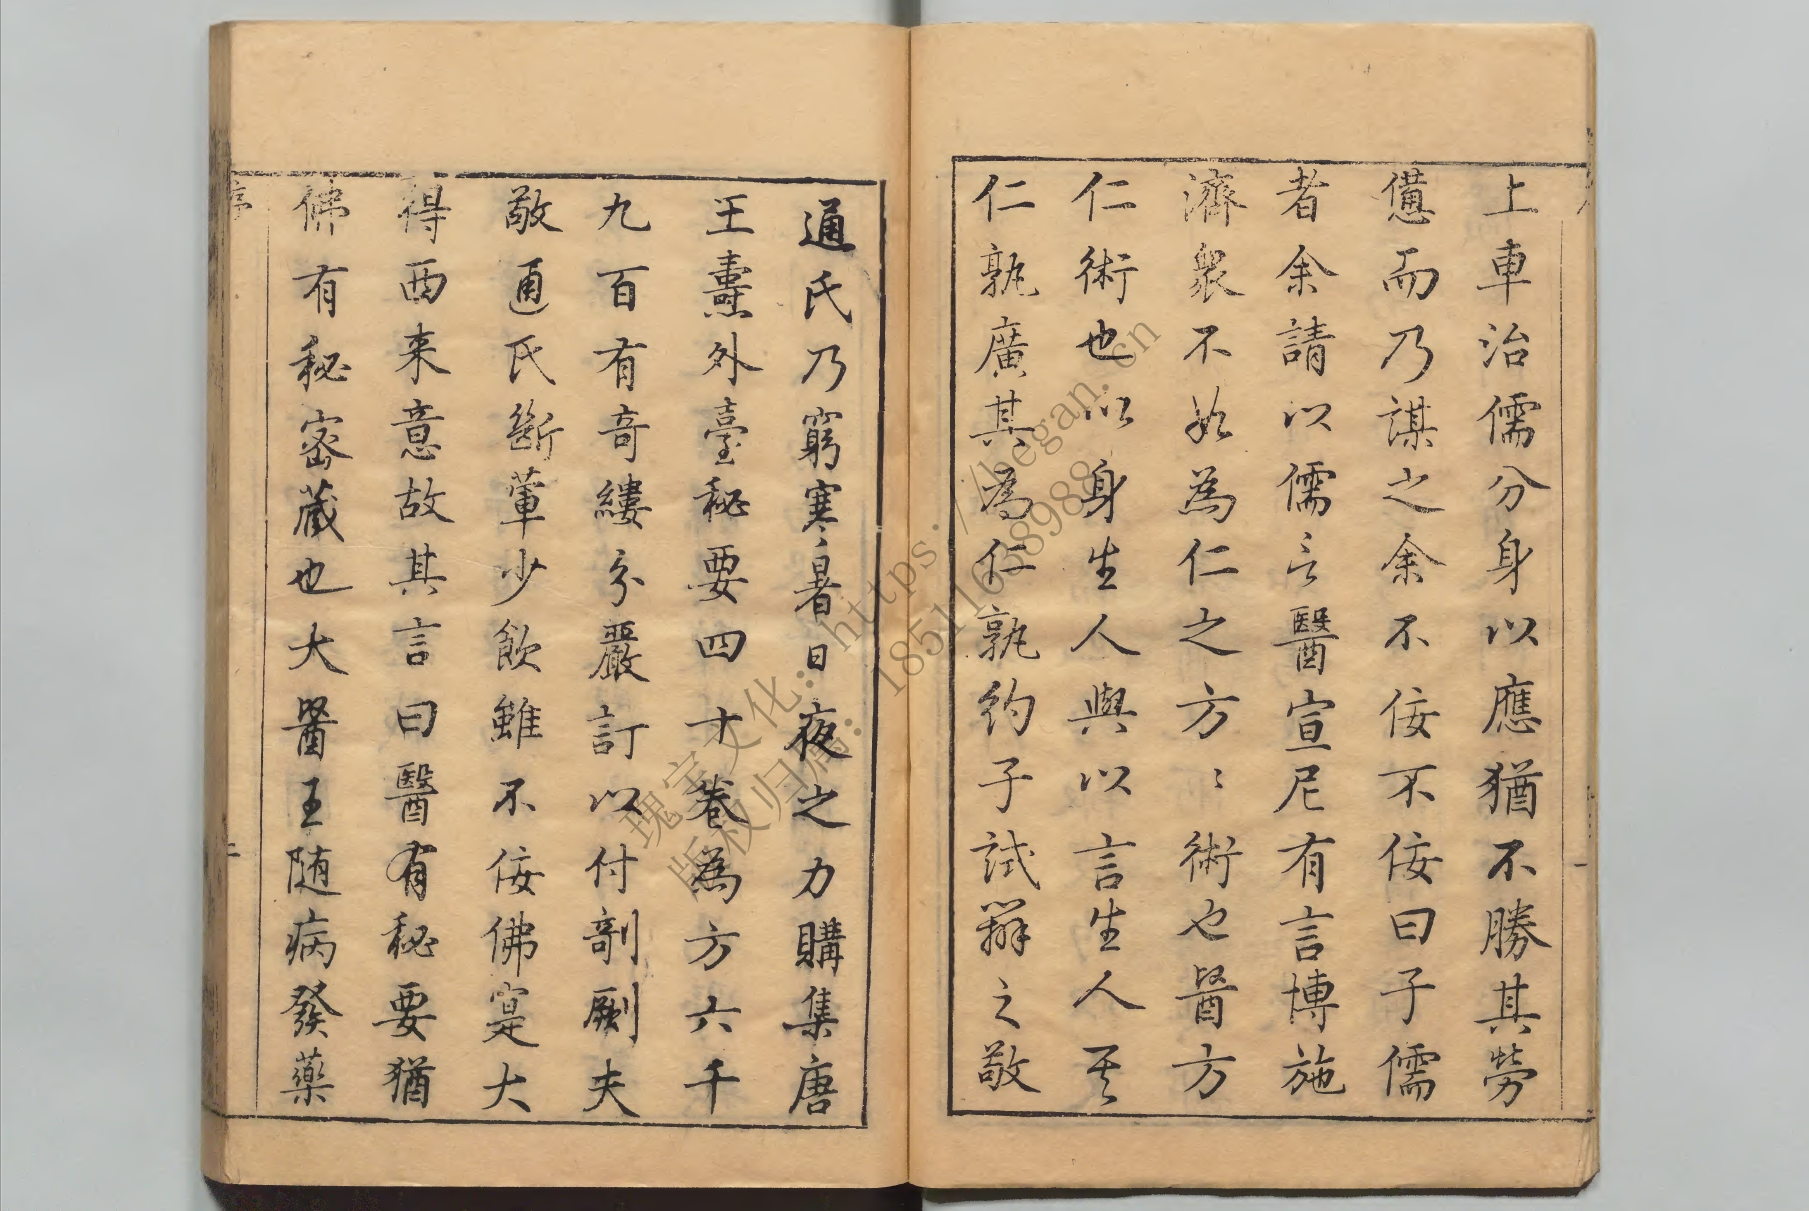 上車治儒分身以應猶不勝其勞
憊而乃謀之余不佞不佞曰子儒
者余請以儒言醫宣尼有言博施
濟衆不如為仁之方〻術也醫方
仁術也以身生人與以言生人其
仁孰廣其為仁孰約子試辯之敬
通氏乃窮寒暑日夜之力購集唐
王燾外臺秘要四十卷為方六千
九百有奇縷分嚴訂以付剞劂夫
敬通氏斷葷少飲雖不佞佛寔大
得西来意故其言曰醫有秘要猶
佛有秘密蔵也大醫王随病發藥
序
二
瑰宝文化：https://began.cn
版权归属：18511638988